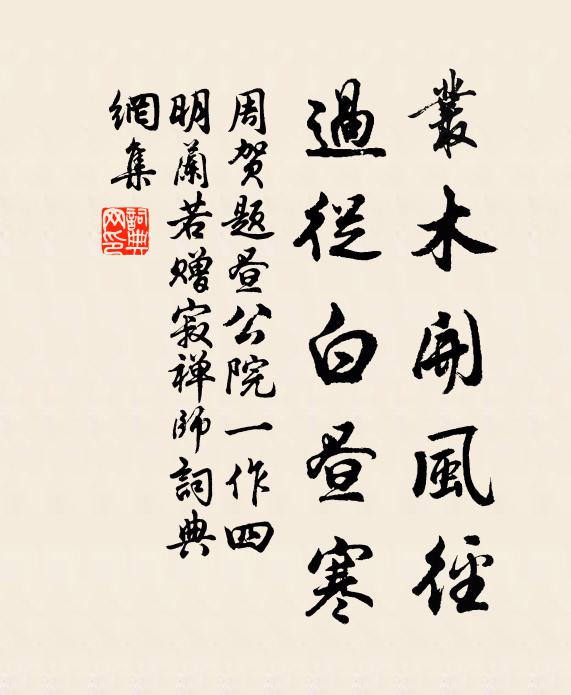 叢木開風徑
過從白晝寒
周賀題晝公院一作四
明蘭若贈寂禅師詞典
網集
詞典
网印